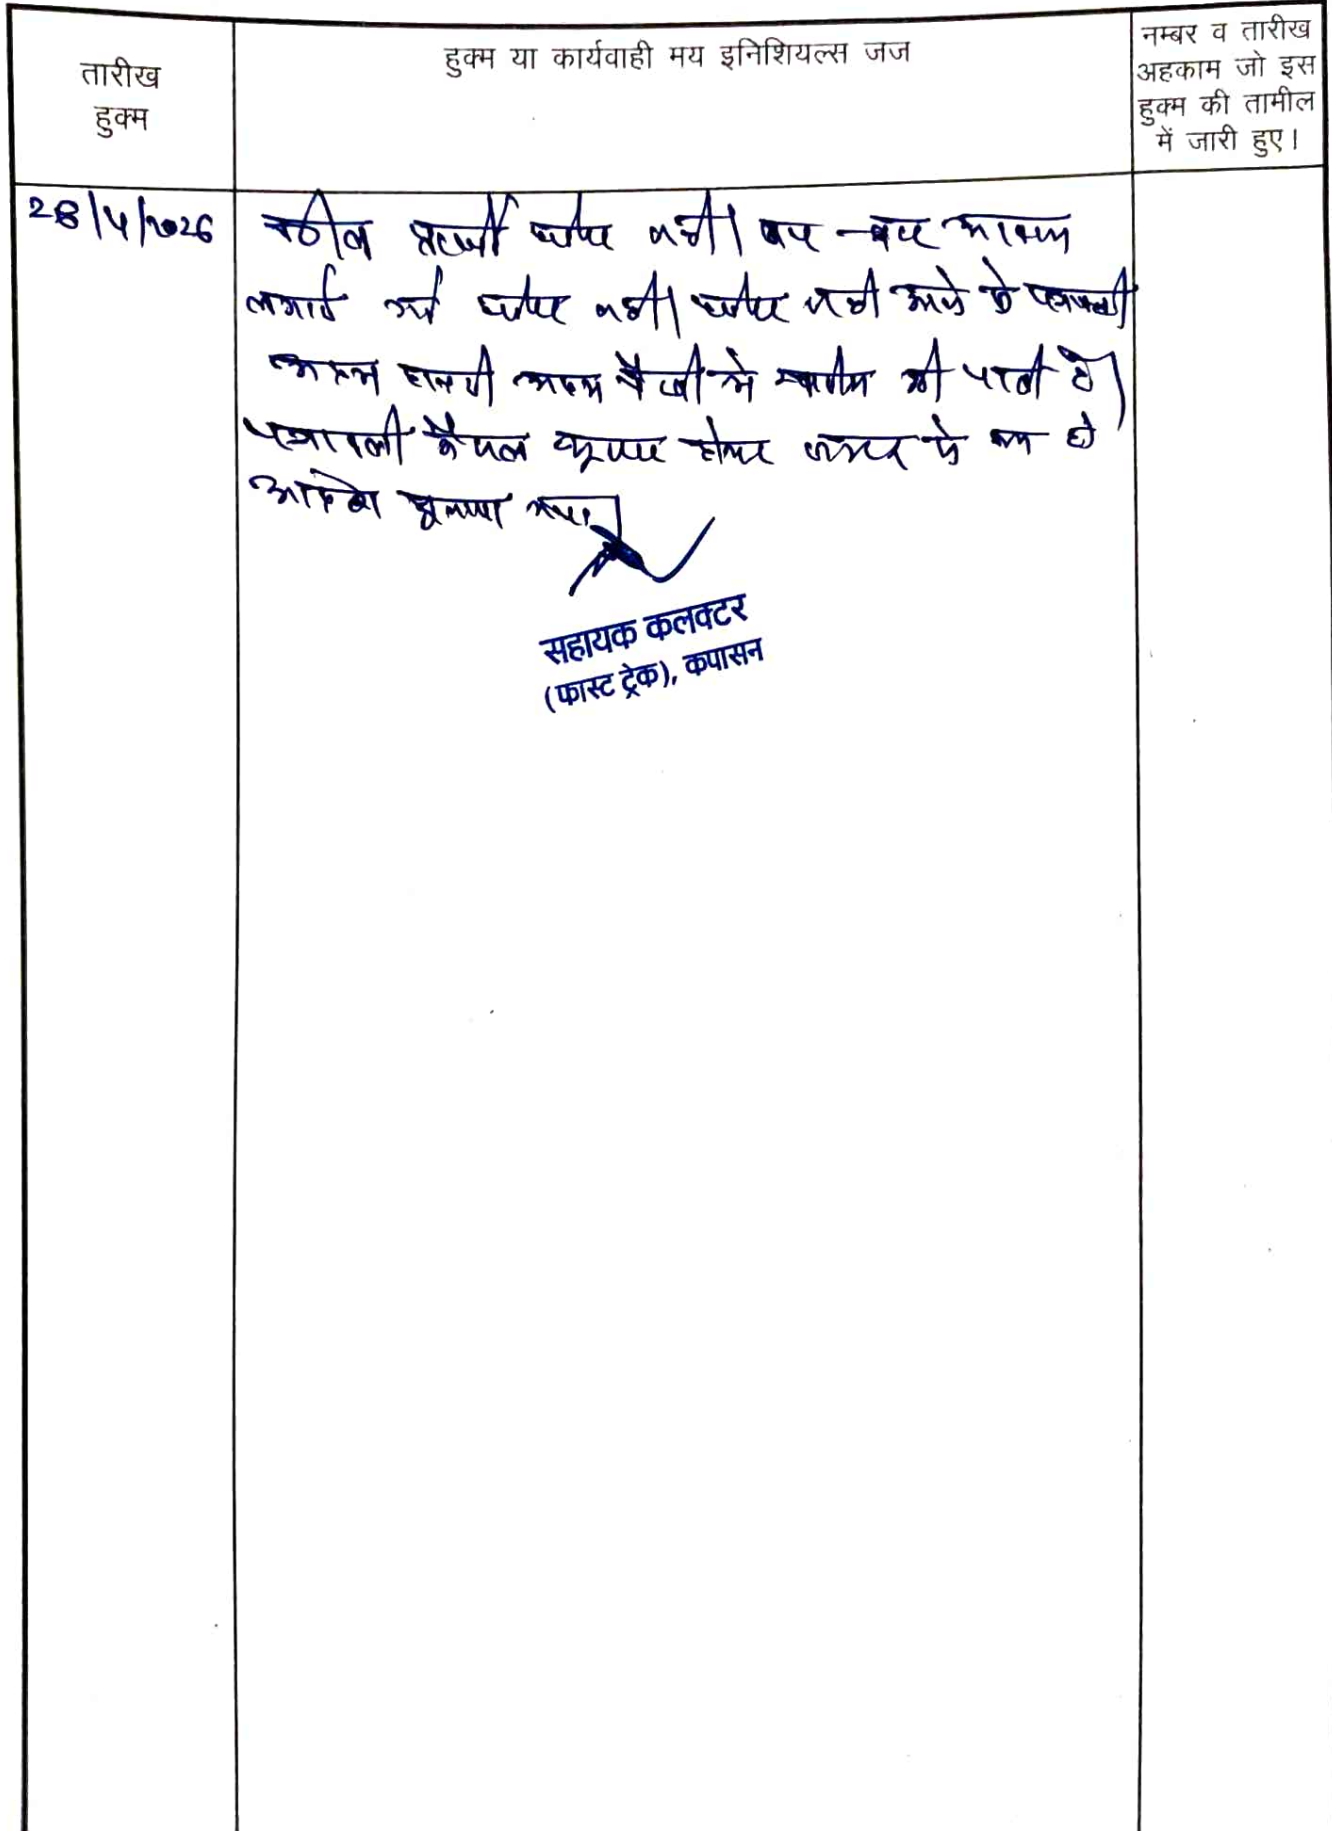 तारीख
हुक्म
हुक्म या कार्यवाही मय इनिशियल्स जज
नम्बर व तारीख
अहकाम जो इस
हुक्म की तामील
में जारी हुए।
28/4/2026
वकील प्रार्थी हाजिर नहीं। बार-बार आवाज
लगाई गई हाजिर नहीं। हाजिर नहीं आने से पत्रावली
अदम हाजरी अदम पैरवी में खारीज की जाती है।
पत्रावली फैसल शुमार होकर नम्बर से कम हो
आदेश सुनाया गया।
सहायक कलक्टर
(फास्ट ट्रेक), कपासन